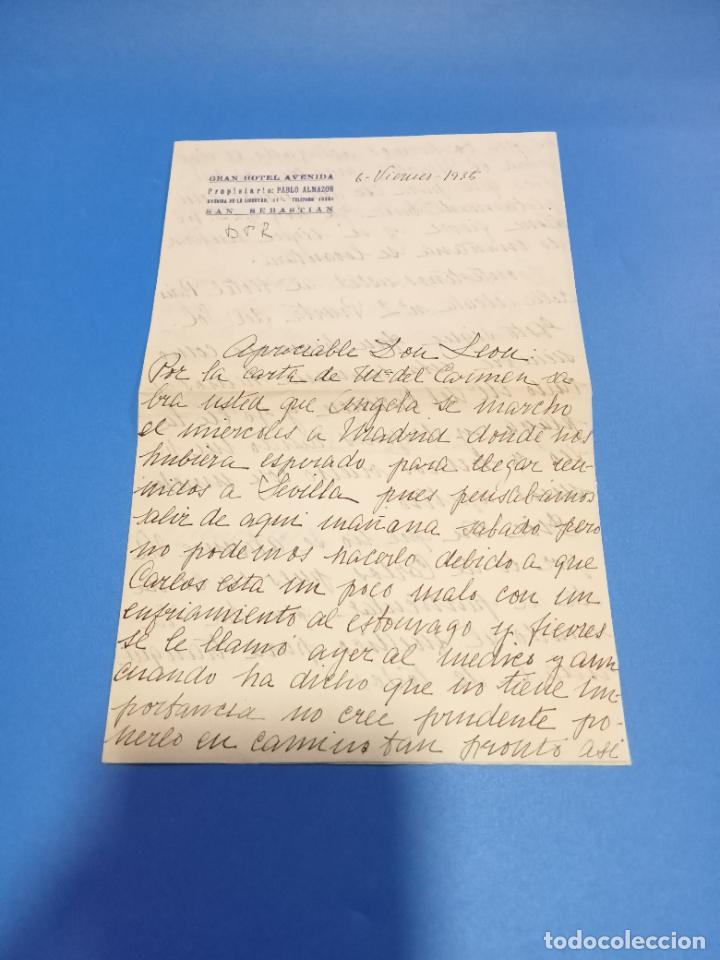 GRAN HOTEL AVENIDA
Propietario: PABLO ALMAZOR
AVENIDA DE LA LIBERTAD, TELÉFONO
SAN SEBASTIAN
6-Viernes-1936
Apreciable Don Leon.
Por la carta de Mª del Carmen sa-
bra usted que Angela se marcho
el miercoles a Madrid donde nos
hubiera esperado para llegar reu-
nidos a Sevilla pues pensabamos
salir de aqui mañana sabado pero
no podemos hacerlo debido a que
Carlos esta un poco malo con un
enfriamiento al estomago y fievres
se le llamó ayer al medico y aun
cuando ha dicho que no tiene im-
portancia no cree prudente po-
nerlo en camino tan pronto asi
todocoleccion
todocoleccion.net